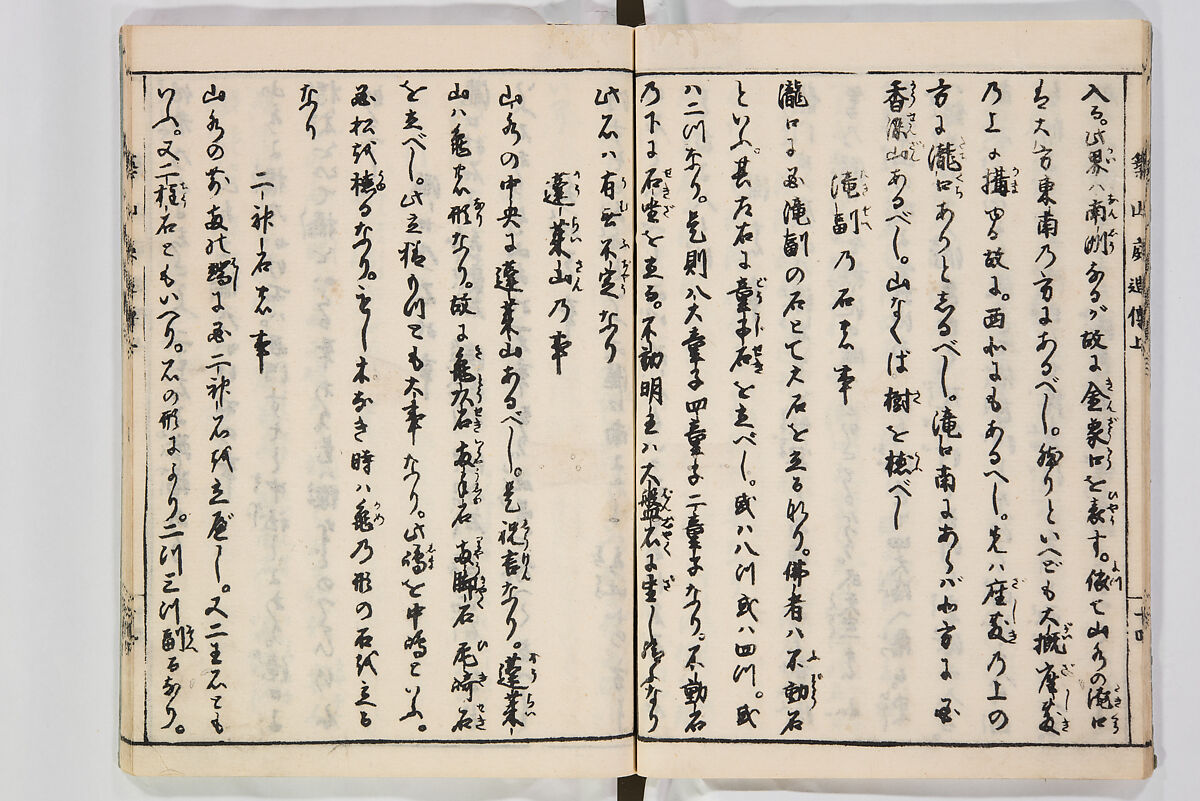 築山庭造傳上
十四
入る。此界ハ南洲なるが故に金衆口を表す。依て山水の滝口
は大方東南乃方にあるべし。然りといへども大概座敷
乃上に搆ゆる故に。西北にもあるへし。先ハ座敷乃上の
方に瀧口ありと志るべし。滝口南にあらバ北方に必
香深山あるべし。山なくば樹を植べし
滝副乃石之事
瀧口に必滝副の石とて大石を立る也。佛者ハ不動石
といふ。其左右に童子石を立べし。或ハ八ツ或ハ四ツ。或
ハ二ツなり。是則八大童子四童子二童子なり。不動石
乃下に石坐を立る。不動明王ハ大盤石に坐し給ふなり
此石ハ有無不定なり
蓬莱山乃事
山水の中央に蓬莱山あるべし。是祝言なり。蓬莱
山ハ亀之形なり。故に亀頭石両手石両脚石尾崎石
を立べし。此立様ヶ川とも大事なり。此嶋を中嶋といふ。
必松を植るなり。もし木なき時ハ亀乃形の石を立る
なり
二神石之事
山水のまへ両の端に必二神石を立べし。又二王石とも
いふ。又二柱石ともいへり。石の形により。二ツ三ツ副るなり。